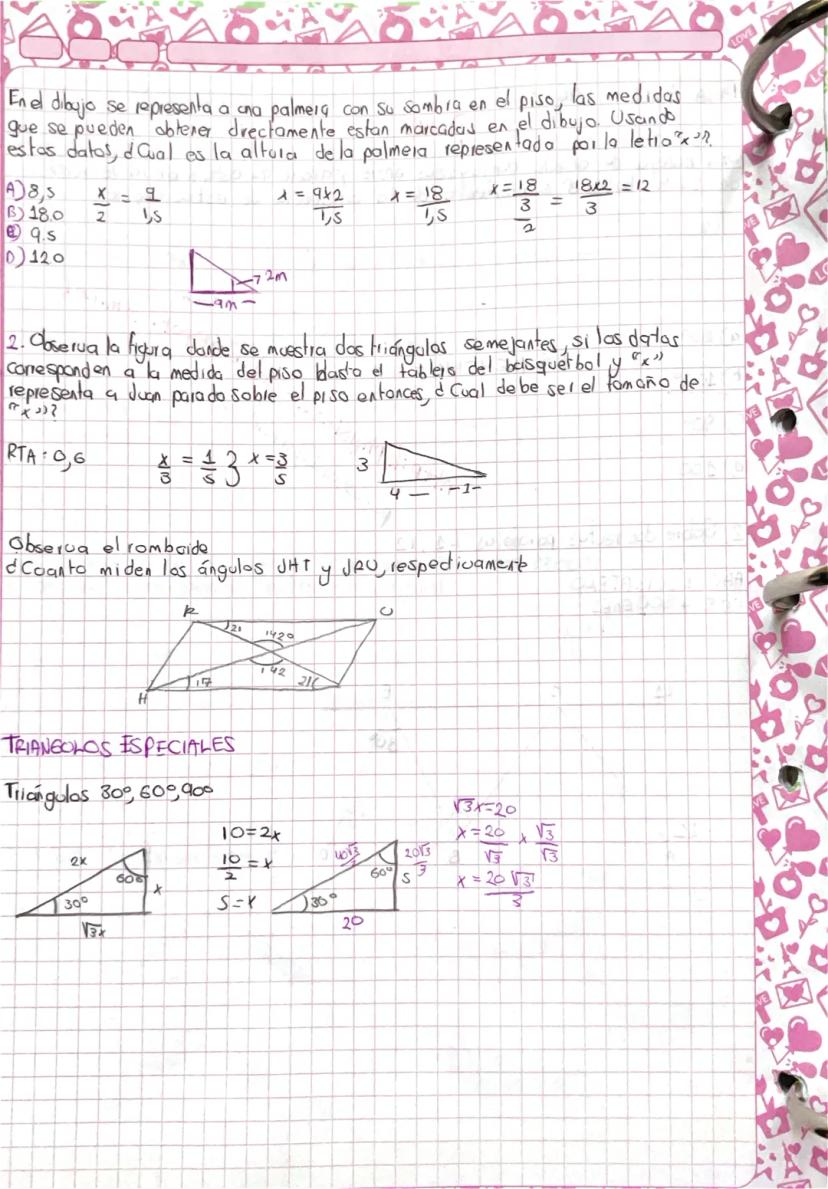 En el dibujo se representa a una palmera con su sombra en el piso, las medidas
que se pueden obtener directamente estan marcadas en el dibujo. Usando
estos datos, ¿Cual es la altura de la palmera representado por la letra "x"?
A) 8,5
B) 18.0
C) 9.5
D) 12.0
x/2 = 9/1,5
x = 9x2/1,5
x = 18/1,5
x = 18/(3/2) = 18x2/3 = 12
2m
9m
2. Observa la figura donde se muestra dos triángulos semejantes, si los datos
corresponden a la medida del piso hasta el tablero del basquetbol y "x"
representa a Juan parado sobre el piso entonces, ¿Cual debe ser el tamaño de
"x"?
RTA: 0,6
x/3 = 1/5 } x = 3/5
3
4 — -1-
Observa el romboide
¿Cuanto miden los ángulos JHT y JRU, respectivamente
R U
21 142°
17 142 21
H
TRIANGULOS ESPECIALES
Triángulos 30°, 60°, 90°
2x
60°
30°
x
√3x
10=2x
10/2 = x
5=x
40√3/3
20√3/3
60°
5
30°
20
√3x=20
x = 20/√3 x √3/√3
x = 20√3/3
LOVE